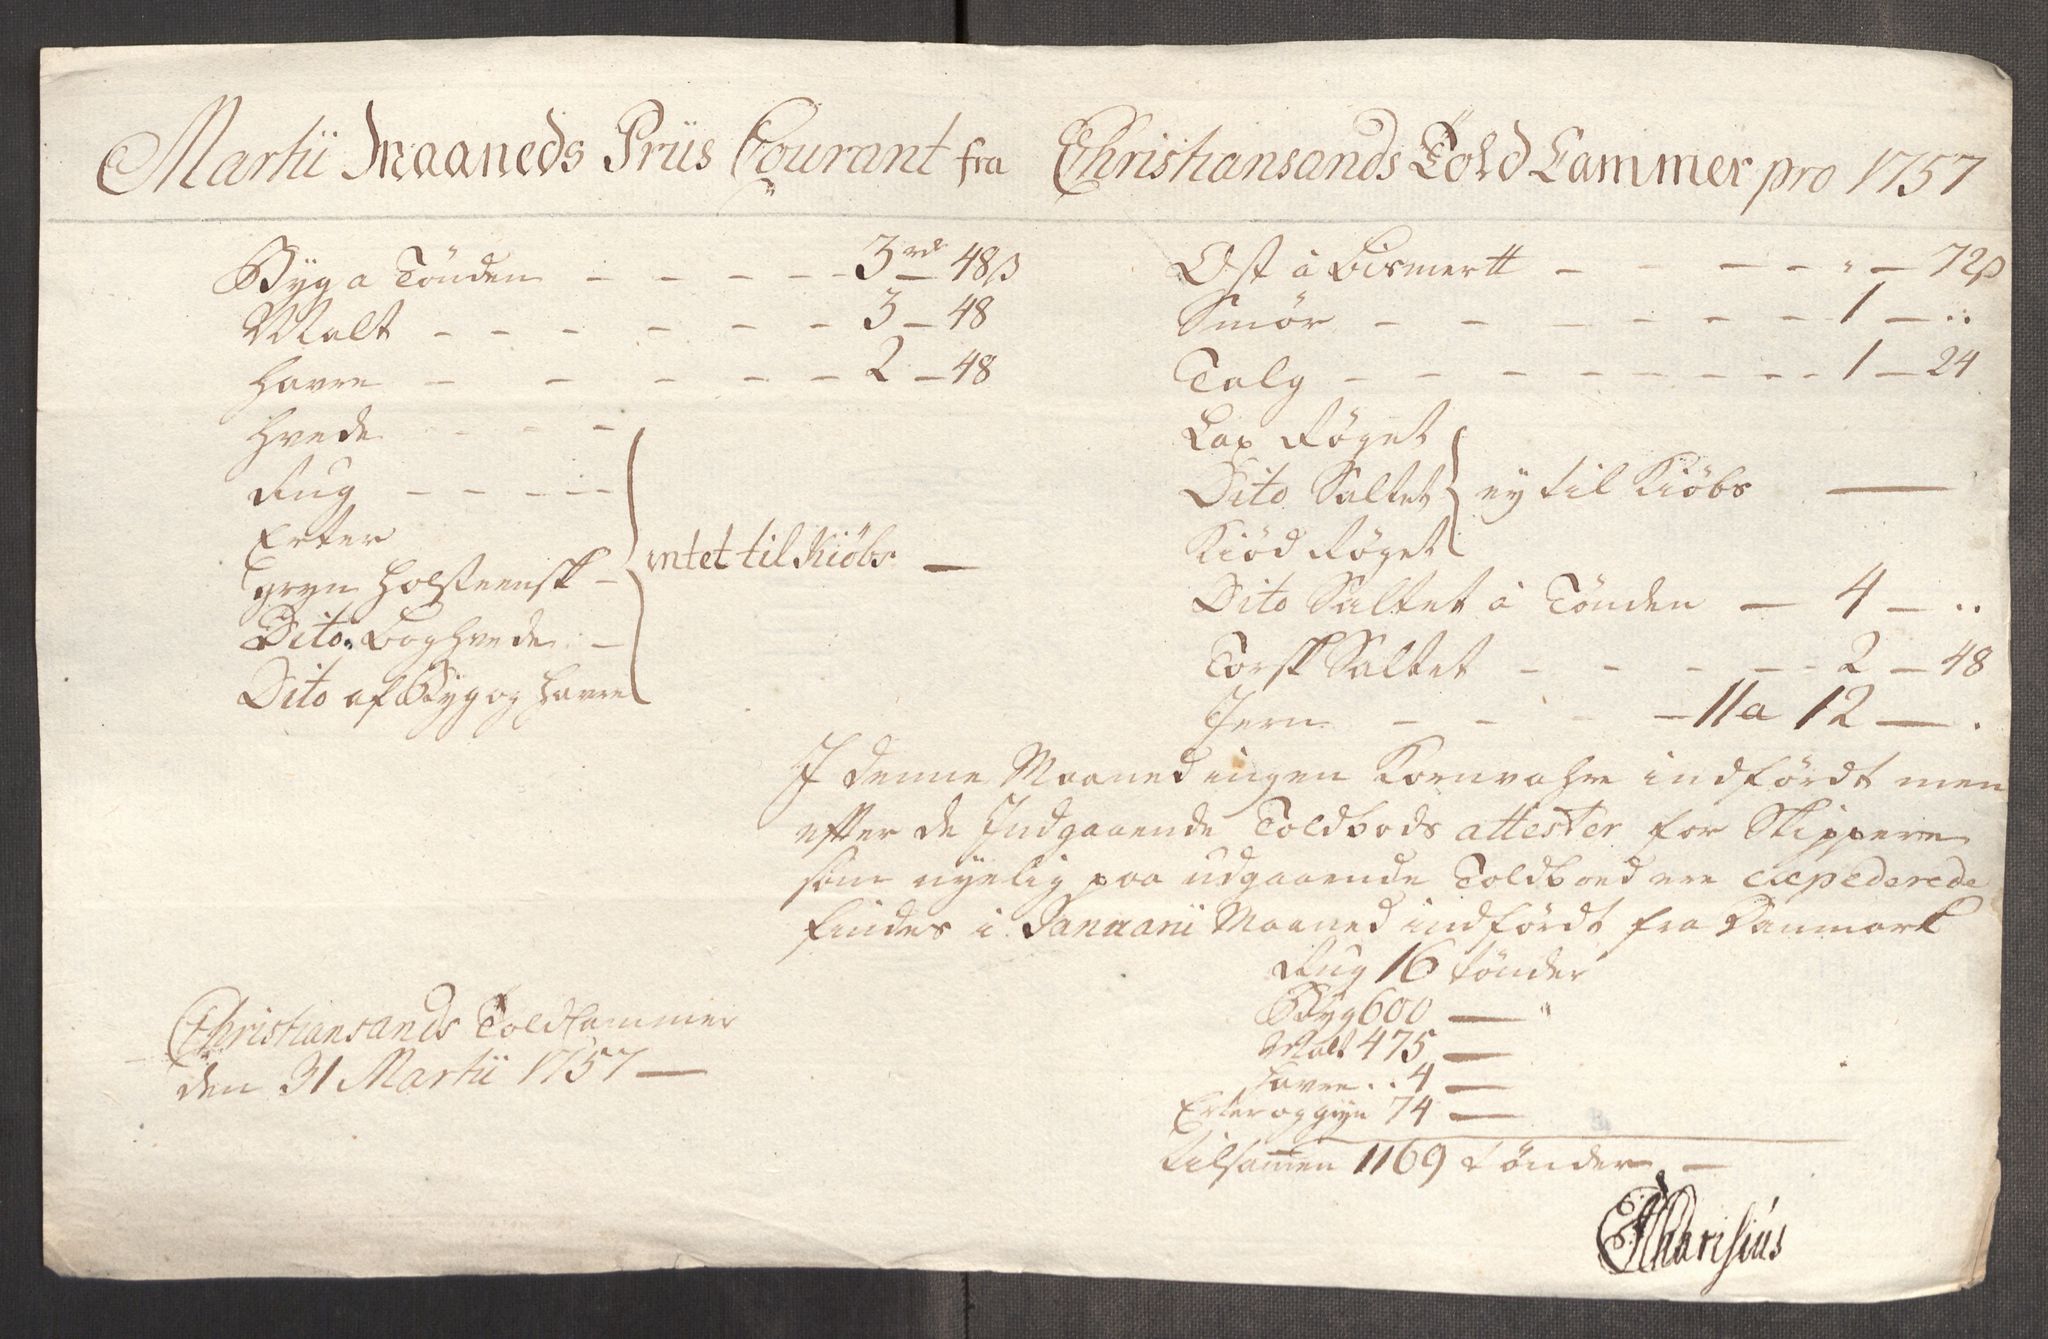 Martii Maaneds Priis Courant fra Christiansands Told Cammer pro 1757
Byg a Tönden - - - - - 3 rd - 48 ß
Malt - - - - - - 3 - 48
Havre - - - - - 2 - 48
Hvede - - -
Rug - - - -
Erter
gryn Holsteensk -
Dito Boghvede -
Dito af Byg og Havre
intet til Kiöbs —
Ost á Bismertt - - - - " - 72 ß
Smör - - - - - - - 1 - ..
Talg - - - - - - - - 1 - 24
Lax Röget
Dito Saltet
Kiöd Röget
ey til Kiöbs —
Dito Saltet á Tönden - 4 - ..
Torsk Saltet - - - - - 2 - 48
Jern - - - - 11 a 12 - .
I denne Maaned ingen Kornvahre indfördt men
efter de Indgaaende Toldbods attester for Skippere
som nyelig paa udgaaende Toldboed ere expederede
findes i Januarii Maaned indfördt fra Danmark
Rug 16 tönder
Byg 600 — "
Malt 475 —
Havre .. 4 —
Erter og gryn 74 —
Tilsammen 1169 tönder —
Christiansands Toldcammer
den 31 Martii 1757 —